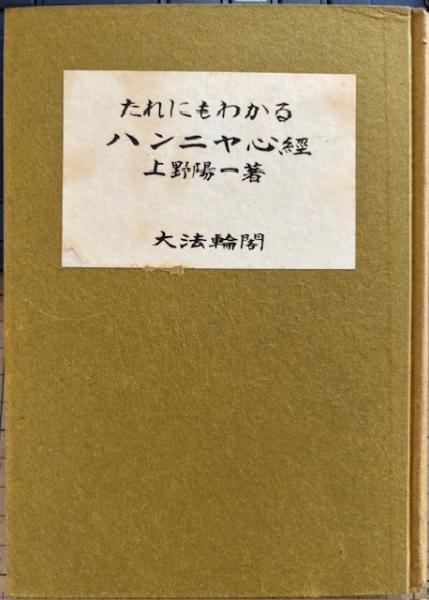 たれにもわかる
ハンニヤ心經
上野陽一著
大法輪閣